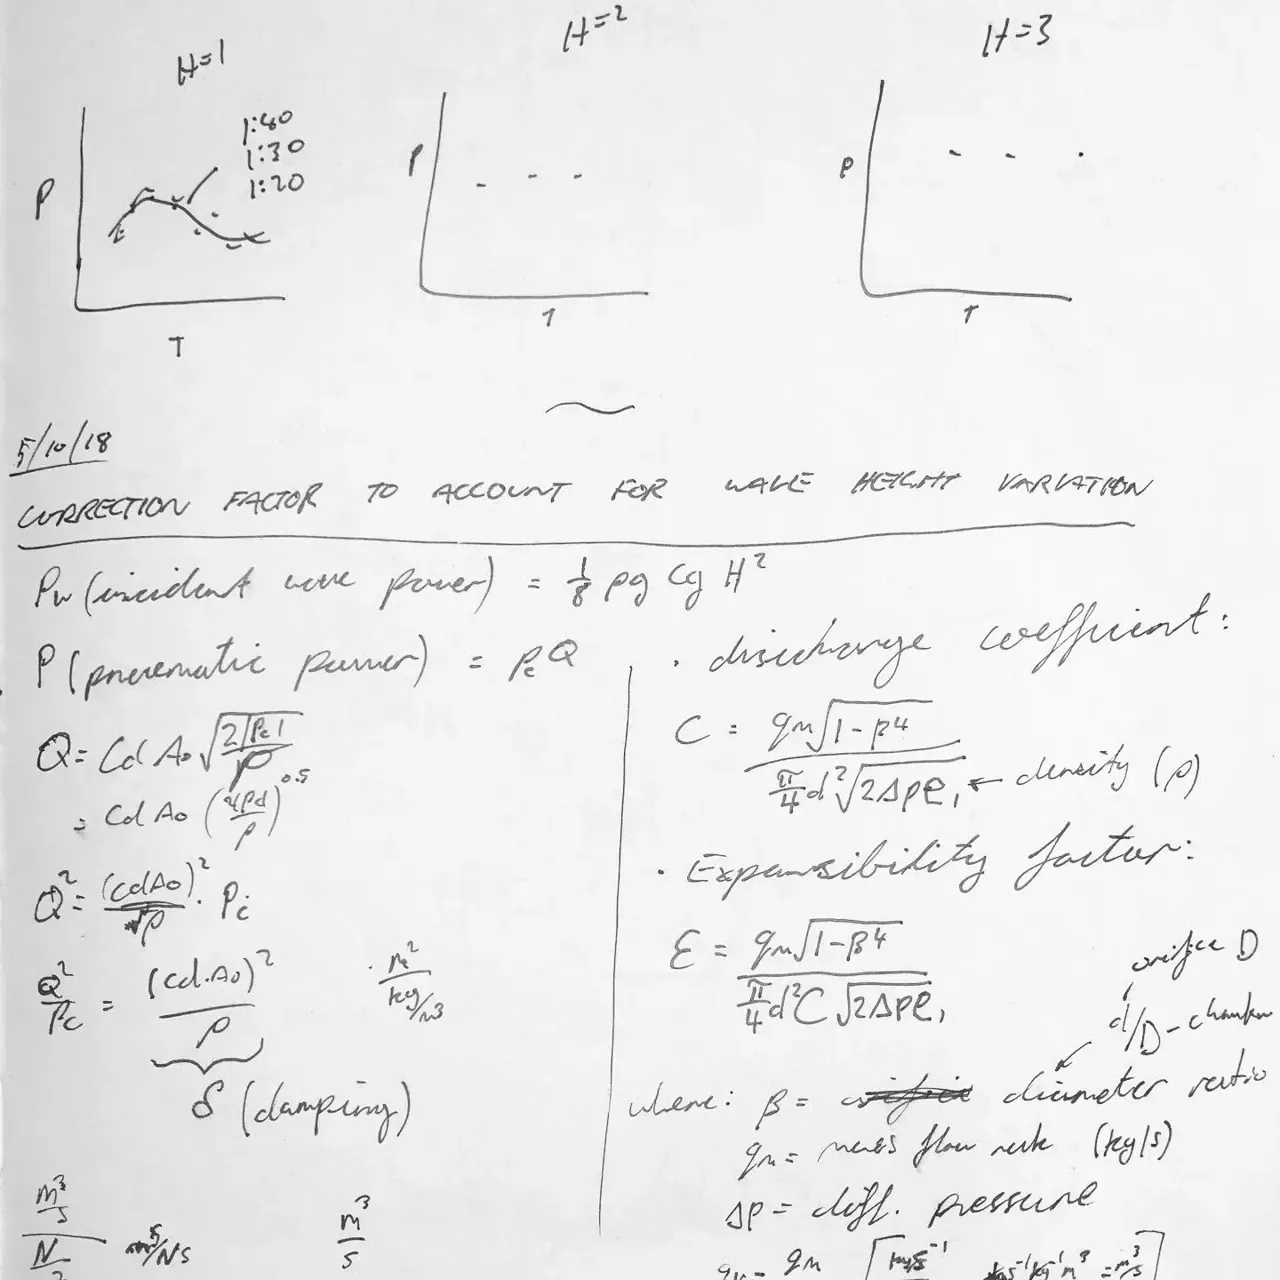 H=1
H=2
H=3
1:40
1:30
1:20
P
T
P
T
P
T
5/10/18
CORRECTION FACTOR TO ACCOUNT FOR WAVE HEIGHT VARIATION
Pw (incident wave power) = 1/8 ρg Cg H²
P (pneumatic power) = pc Q
Q = Cd Ao √(2|Pc|/ρ)
= Cd Ao ( /ρ)^0.5
Q² = (CdAo)²/ρ · Pc
Q²/Pc = (Cd.Ao)²/ρ
m²/kg/m³
δ (damping)
m³/s / N
m⁵/Ns
m³/s
· discharge coefficient:
C = qm√(1-β⁴) / π/4 d²√(2Δpρ₁ ← density (ρ)
· Expansibility factor:
ε = qm√(1-β⁴) / π/4 d²C √(2Δpρ₁
orifice D
d/D - chamber
where: β = diameter ratio
qm = mass flow rate (kg/s)
Δp = diff. pressure